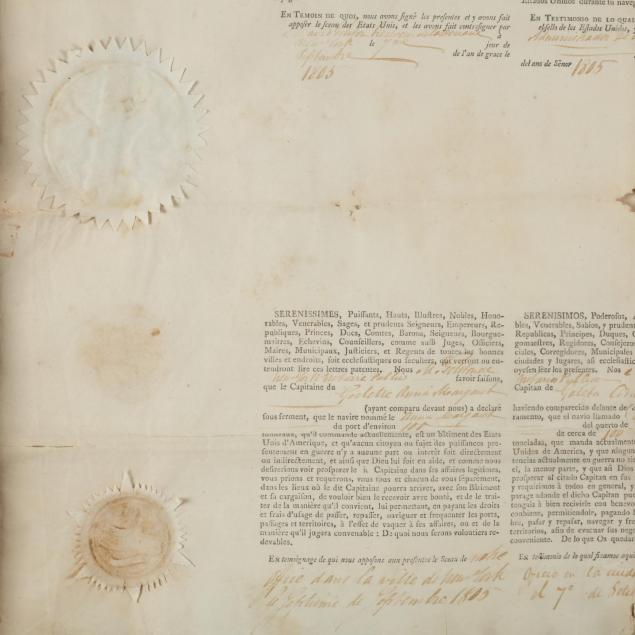 EN TEMOIN DE QUOI, nous avons signé les présentes et y avons fait
apposer le sceau des Etats Unis, et les avons fait contresigner par
à
New York le 7me jour de
Septembre de l'an de grace le
1805
Etados Unidos durante tu nave
EN TESTIMONIO DE LO QUAL
essello de los Estados Unidos, y
Administrador de
del ans de Sénor 1805
SERENISSIMES, Puissants, Hauts, Illustres, Nobles, Hono-
rables, Venerables, Sages, et prudents Seigneurs, Empereurs, Re-
publiques, Princes, Ducs, Comtes, Barons, Seigneurs, Bourgue-
maitres, Echevins, Counseillers, comme aussi Juges, Officiers,
Maires, Municipaux, Justiciers, et Regents de toutes les bonnes
villes et endroits, soit ecclesiastiques ou seculiers, qui verront ou en-
tendront lire ces lettres patentes. Nous
New York Notaire Public savoir faisons,
que le Capitaine du Goelette Anna Margaret
(ayant comparu devant nous) a declaré
sous serment, que le navire nommé le Anna Margaret
du port d'environ 100
tonneaux, qu'il commande actuellement, est un bâtiment des Etats
Unis d'Amerique, et qu'aucun citoyen ou sujet des puissances pre-
sentement en guerre n'y a aucune part ou interêt soit directement
ou indirectement, et ainsi que Dieu lui soit en aide, et comme nous
desirerions voir prosperer le d. Capitaine dans ses affaires legitimes,
vous prions et requirerons, vous tous et chacun de vous separement,
dans les lieux où le dit Capitaine pourra arriver, avec son Bâtiment
et sa cargaison, de vouloir bien le recevoir avec bonté, et de le trai-
ter de la manière qu'il convient, lui permettant, en payant les droits
et frais d'usage de passer, repasser, naviguer et frequenter les ports,
passages et territoires, à l'effet de vaquer à ses affaires, ou et de la
manière qu'il jugera convenable: De quoi nous serons volontiers re-
devables.
En temoignage de qui nous apposons aux presentes le Sceau de notre
dans la ville de New York
le septieme de Septembre 1805
SERENISIMOS, Poderosos,
bles, Venerables, Sabios, y pruden
Republicas, Principes, Duques, C
gomaestres, Regidores, Consejero
ciales, Corregidores, Municipales
ciudades y lugares, asi ecclesiastic
oyesen léer los presentes. Nos
Notario Publico
Capitan de Goleta
haviendo comparecido delante de
ramento, que el navio llamado
del puerto de
de cerca de 100
toneladas, que manda actualment
Unidos de America, y que ningun
tencias actualmente en guerra no ti
el, la menor parte, y que asi Dios
prosperar al citado Capitan en sus
y requirimos à todos en general, y
parage adonde el dicho Capitan pu
tengais à bien recivirle con benevo
conbiene, permitiendole, pagando
bre, pasar y repasar, navegar y fre
territorios, afin de evacuar sus nego
conveniente. De lo que Os queda
EN testimonio de lo qual fixamos aqui
Oficio en la
el 7º de